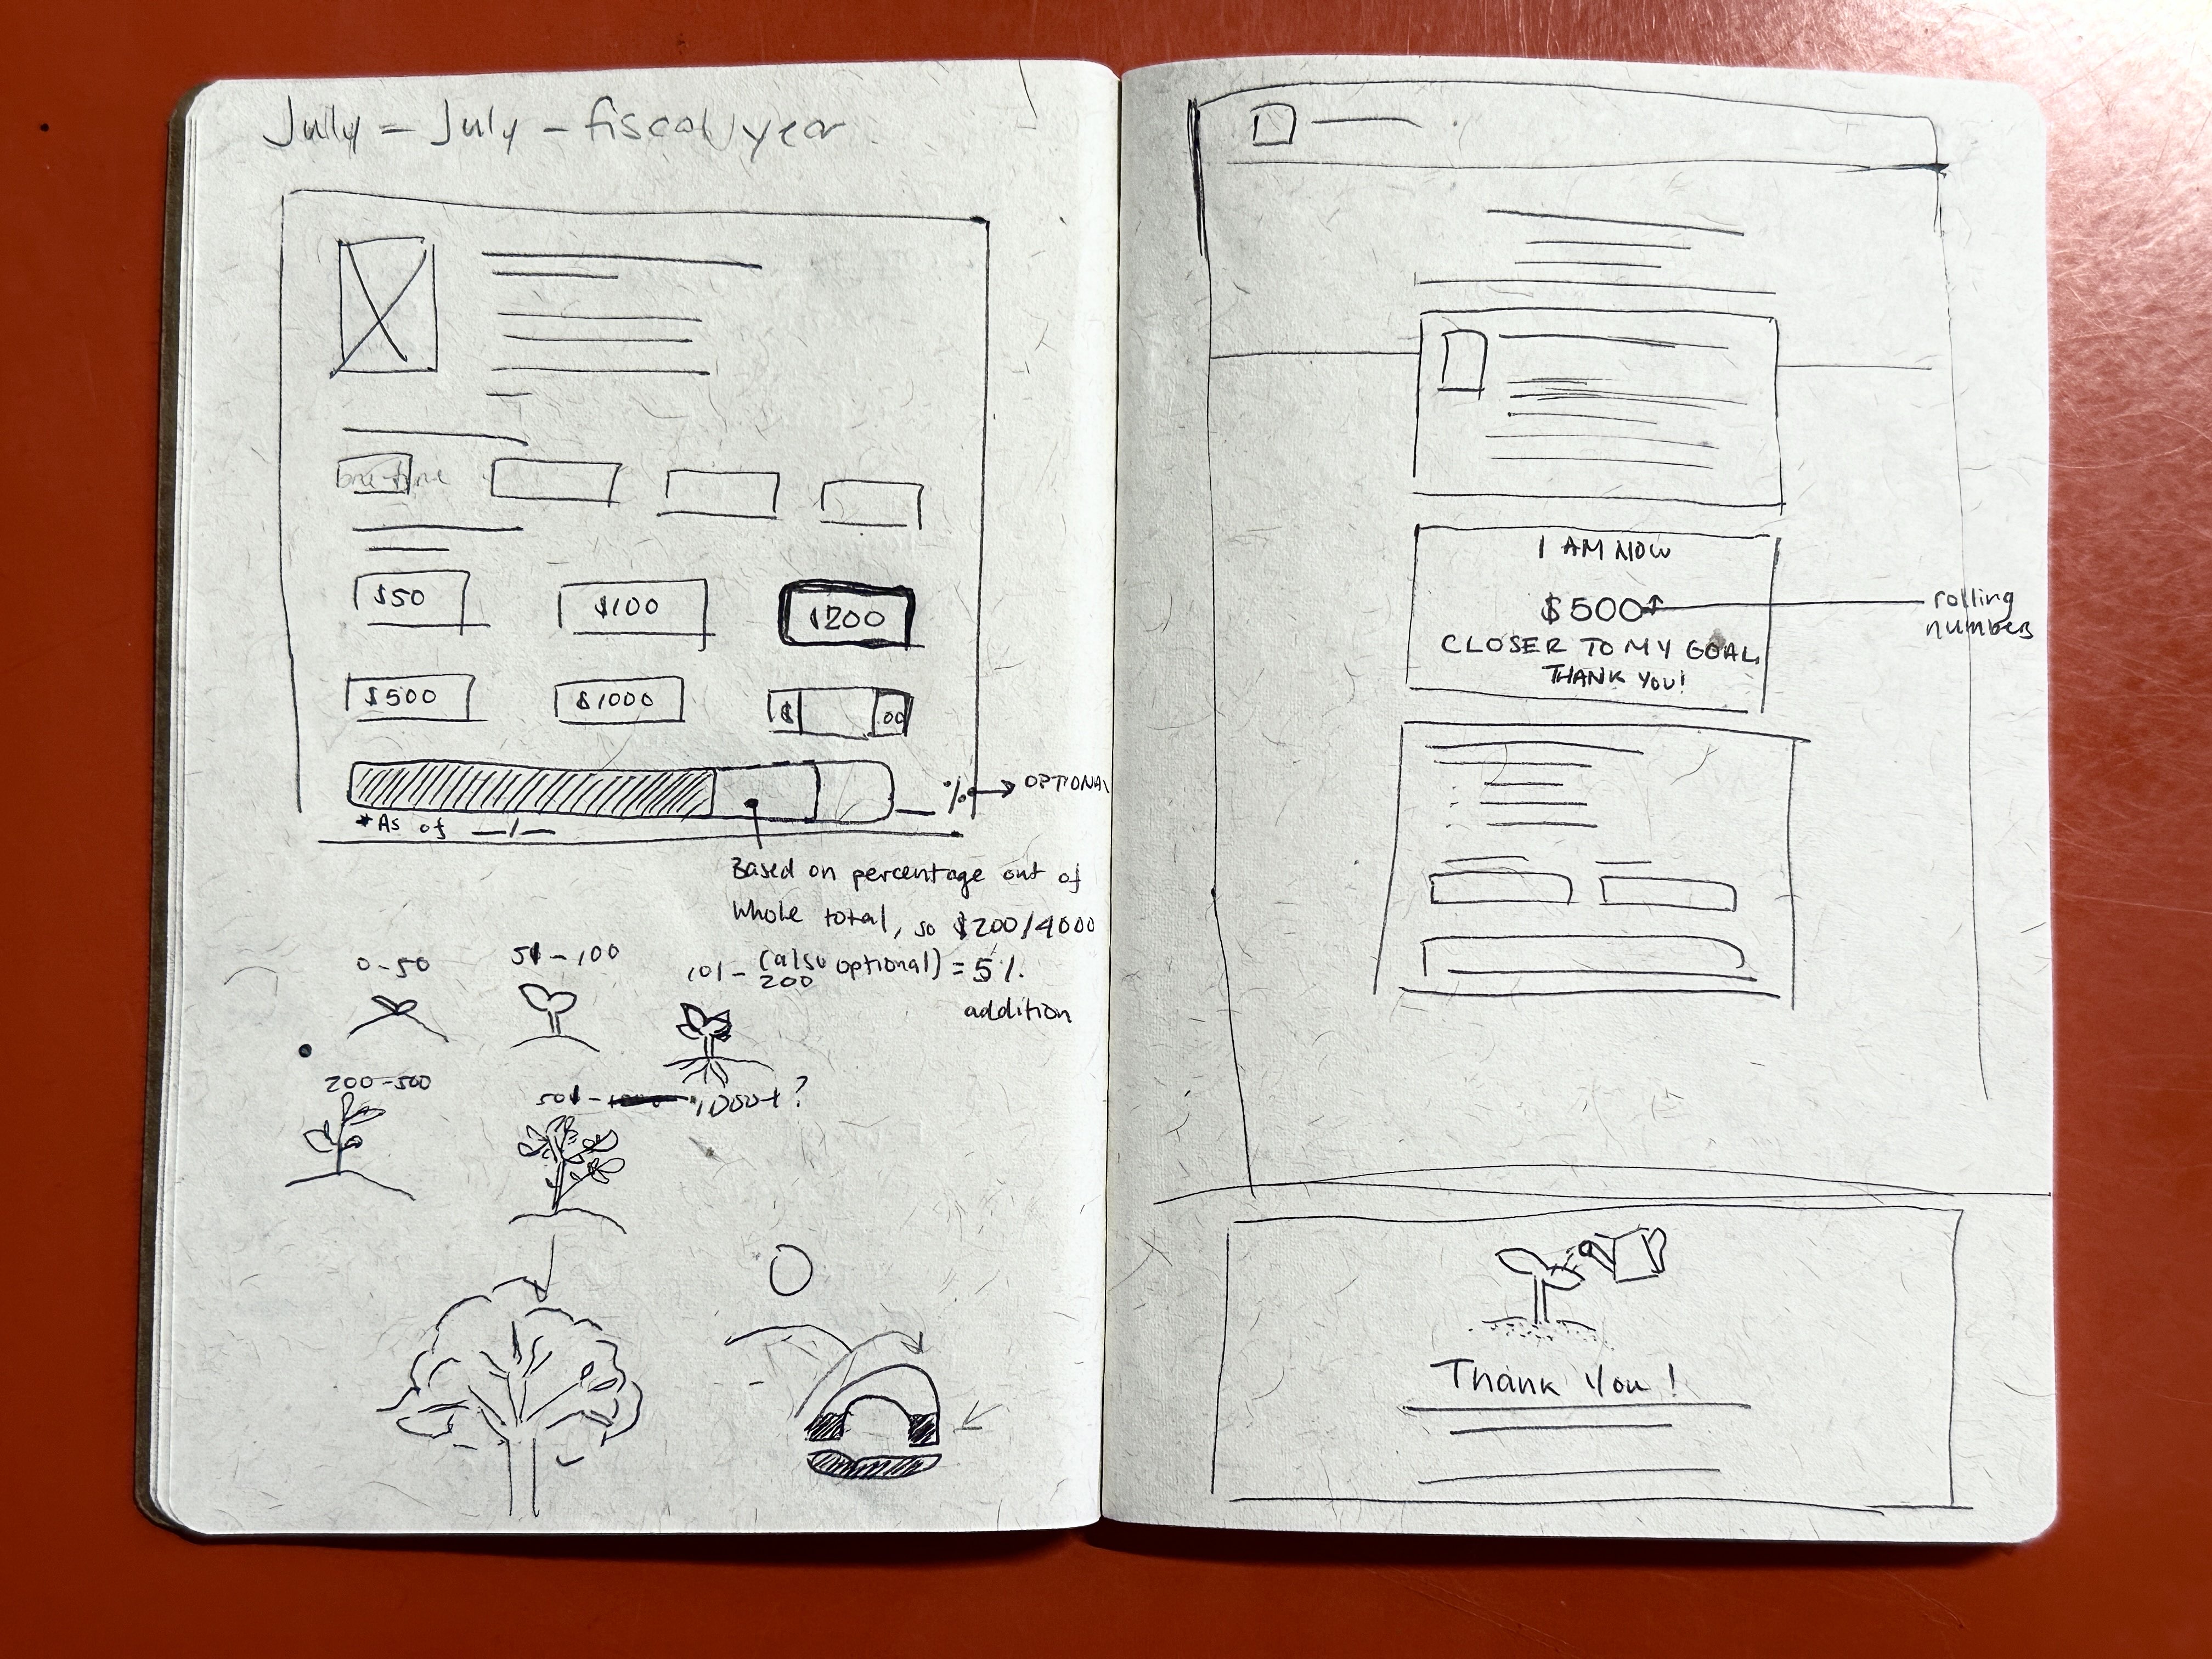 July = July - fiscal year
one-time
$50
$100
$200
$500
$1000
$ .00
% → OPTIONAL
*As of __/__
Based on percentage out of
whole total, so $200/4000
(also optional) = 5%
addition
0-50
51-100
101-
200
200-500
501- 1000+?
I AM NOW
$500↑
CLOSER TO MY GOAL,
THANK YOU!
rolling
numbers
Thank You!